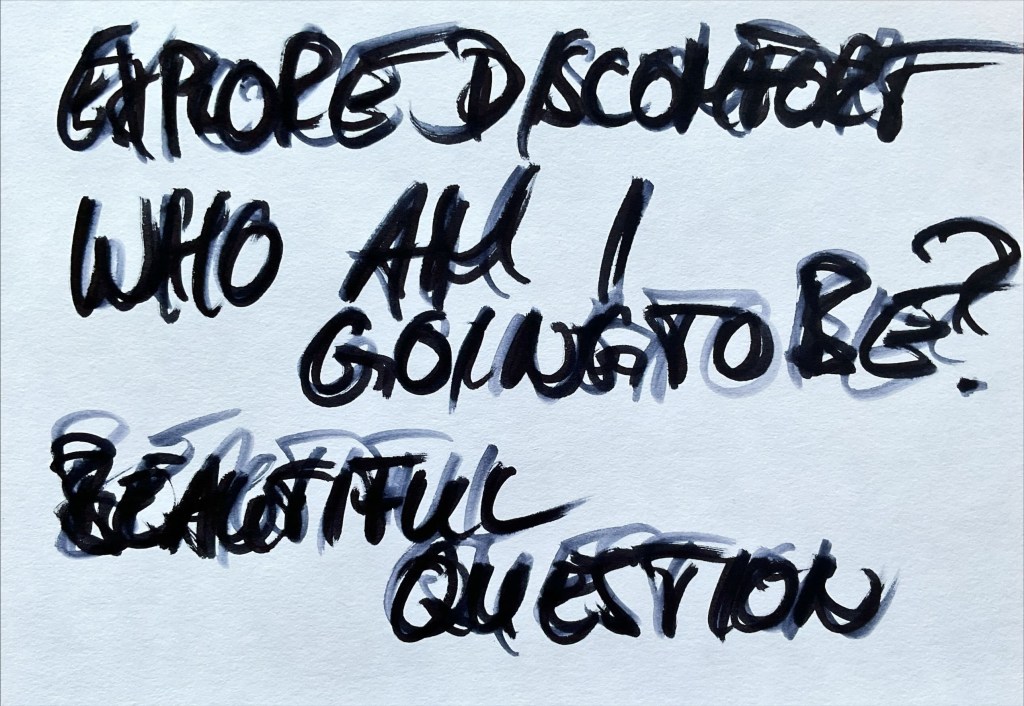 EXPLORE DISCOMFORT
WHO AM I
GOING TO BE?
BEAUTIFUL
QUESTION